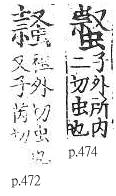 祖外切虫也
又子芮切
p.472
子外所内
二切虫也
p.474